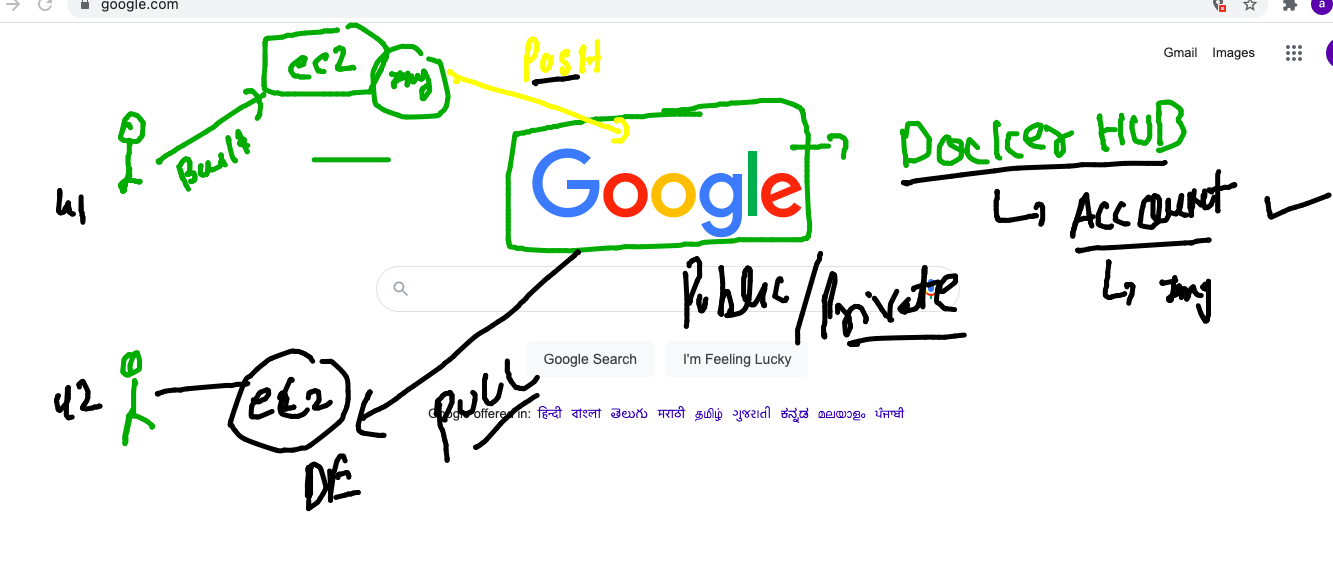 google.com
a
Gmail Images
ec2
img
Push
Built
Google
Docker HUB
u1
Account
img
Public/Private
Google Search I'm Feeling Lucky
u2
ec2
pull
Google offered in: हिन्दी বাংলা తెలుగు मराठी தமிழ் ગુજરાતી ಕನ್ನಡ മലയാളം ਪੰਜਾਬੀ
DE